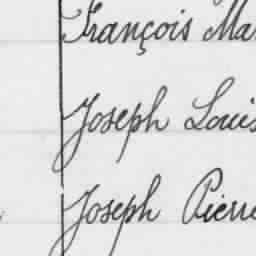 François Ma
Joseph Louis
Joseph Pierre